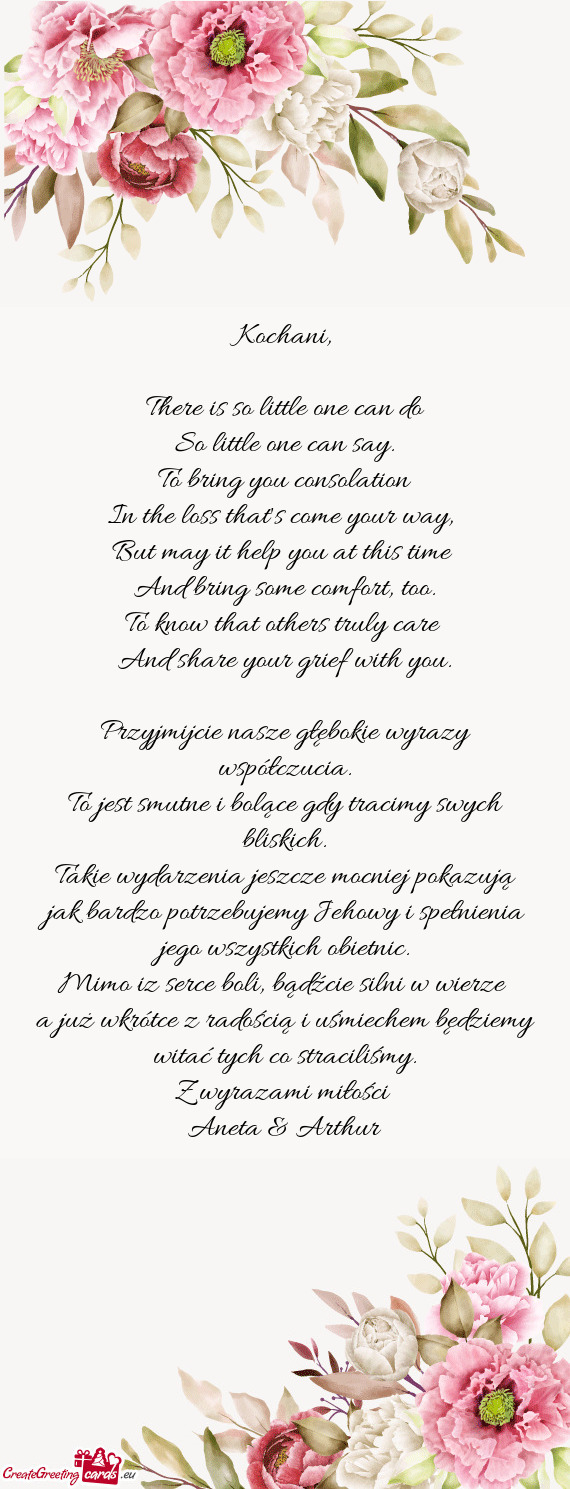 Kochani,
There is so little one can do
So little one can say.
To bring you consolation
In the loss that's come your way,
But may it help you at this time
And bring some comfort, too.
To know that others truly care
And share your grief with you.
Przyjmijcie nasze głębokie wyrazy
współczucia.
To jest smutne i bolące gdy tracimy swych
bliskich.
Takie wydarzenia jeszcze mocniej pokazują
jak bardzo potrzebujemy Jehowy i spełnienia
jego wszystkich obietnic.
Mimo iz serce boli, bądźcie silni w wierze
a już wkrótce z radością i uśmiechem będziemy
witać tych co straciliśmy.
Z wyrazami miłości
Aneta & Arthur
CreateGreeting cards .eu